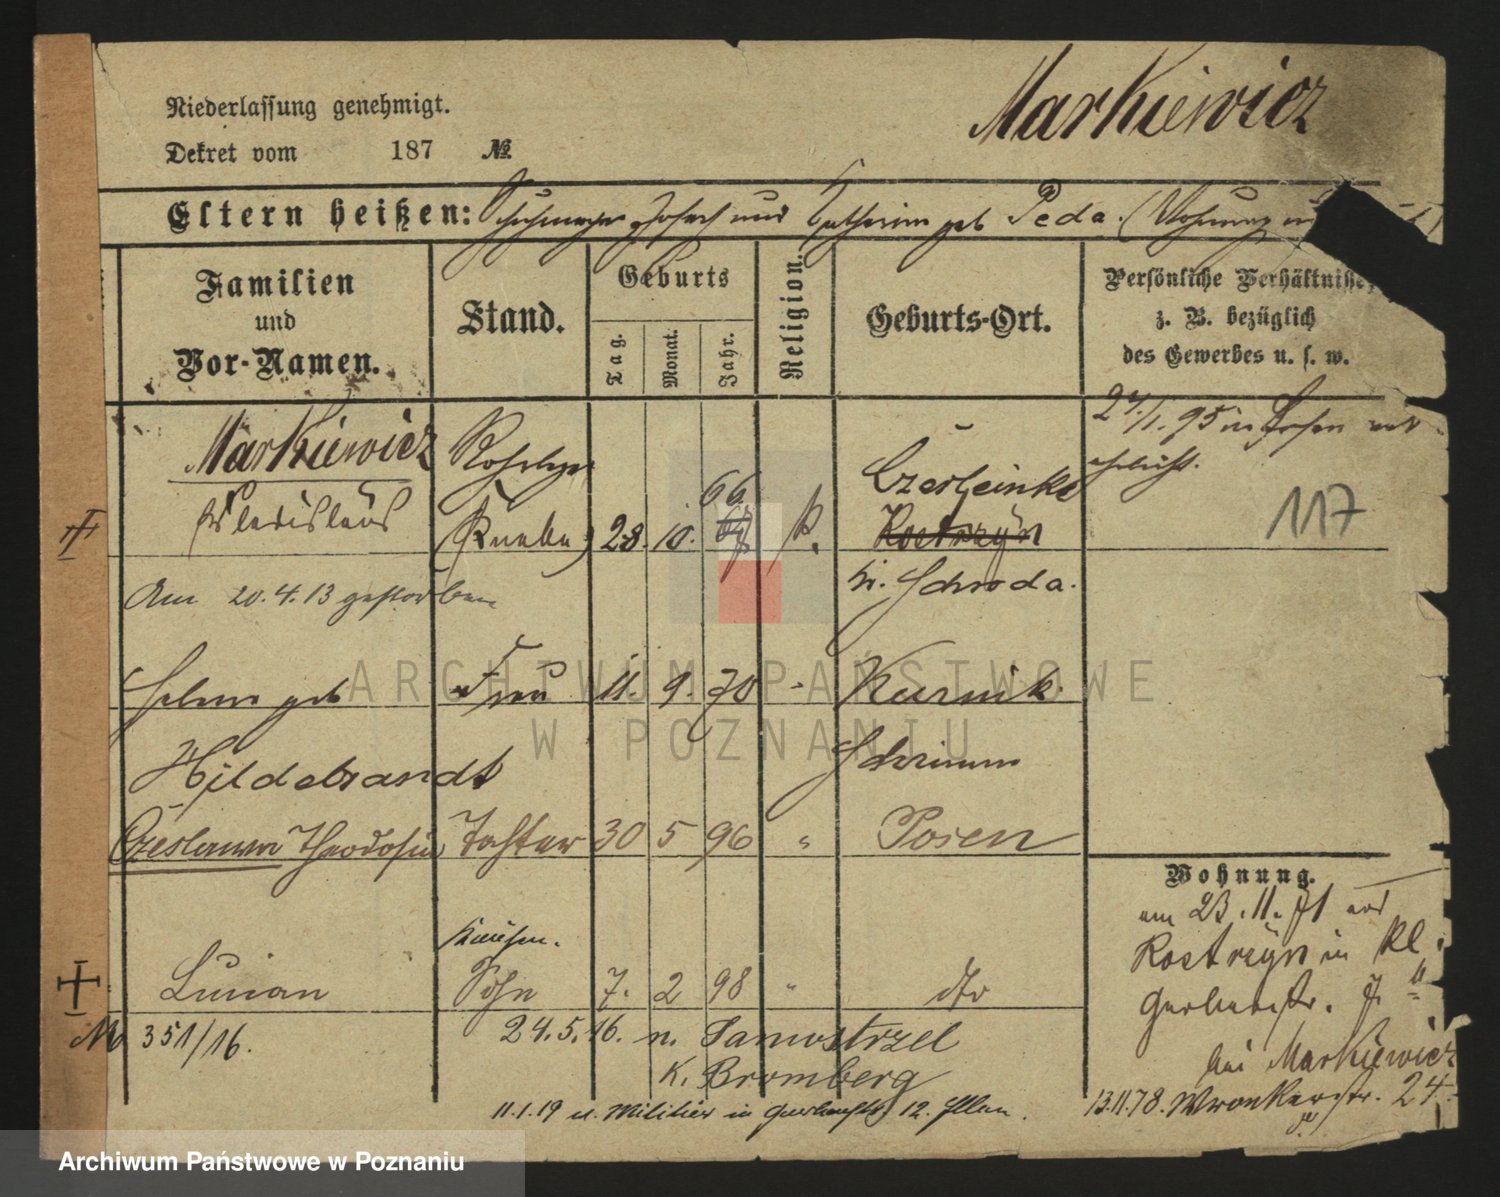 Markiewicz
Niederlassung genehmigt.
Dekret vom 187 №
Eltern heißen: Schuhmacher Joseph und Katharina geb Peda. (Wohnung
Familien
und
Vor-Namen.
Stand.
Geburts
Tag.
Monat.
Jahr.
Religion.
Geburts-Ort.
Persönliche Verhältnisse,
z. B. bezüglich
des Gewerbes u. s. w.
Markiewicz
Wladislaus
(Knabe) 28. 10. 66. 67 k.
Czerleinko
Kostrzyn
Kr. Schroda.
27/1. 95 in Posen ver
ehelicht.
117
Am 20.4.13 gestorben
Helene geb Frau 11. 9. 70 - Kurnik.
Hildebrandt Schrimm
Czeslawa Theodosia Tochter 30 5 96 " Posen
Wohnung.
am 23.11.71 von
Kostrzyn in Kl.
Gerberstr. 7.
bei Markiewicz
13.11.78. Wronkerstr. 24.
Kaufm.
Lucian Sohn 7. 2 98 " dto
№ 351/16. 24.5.16. n. Samostrzel
K. Bromberg
11.1.19 v. Militär in Gerberstr. 12.
ARCHIWUM PAŃSTWOWE
W POZNANIU
Archiwum Państwowe w Poznaniu